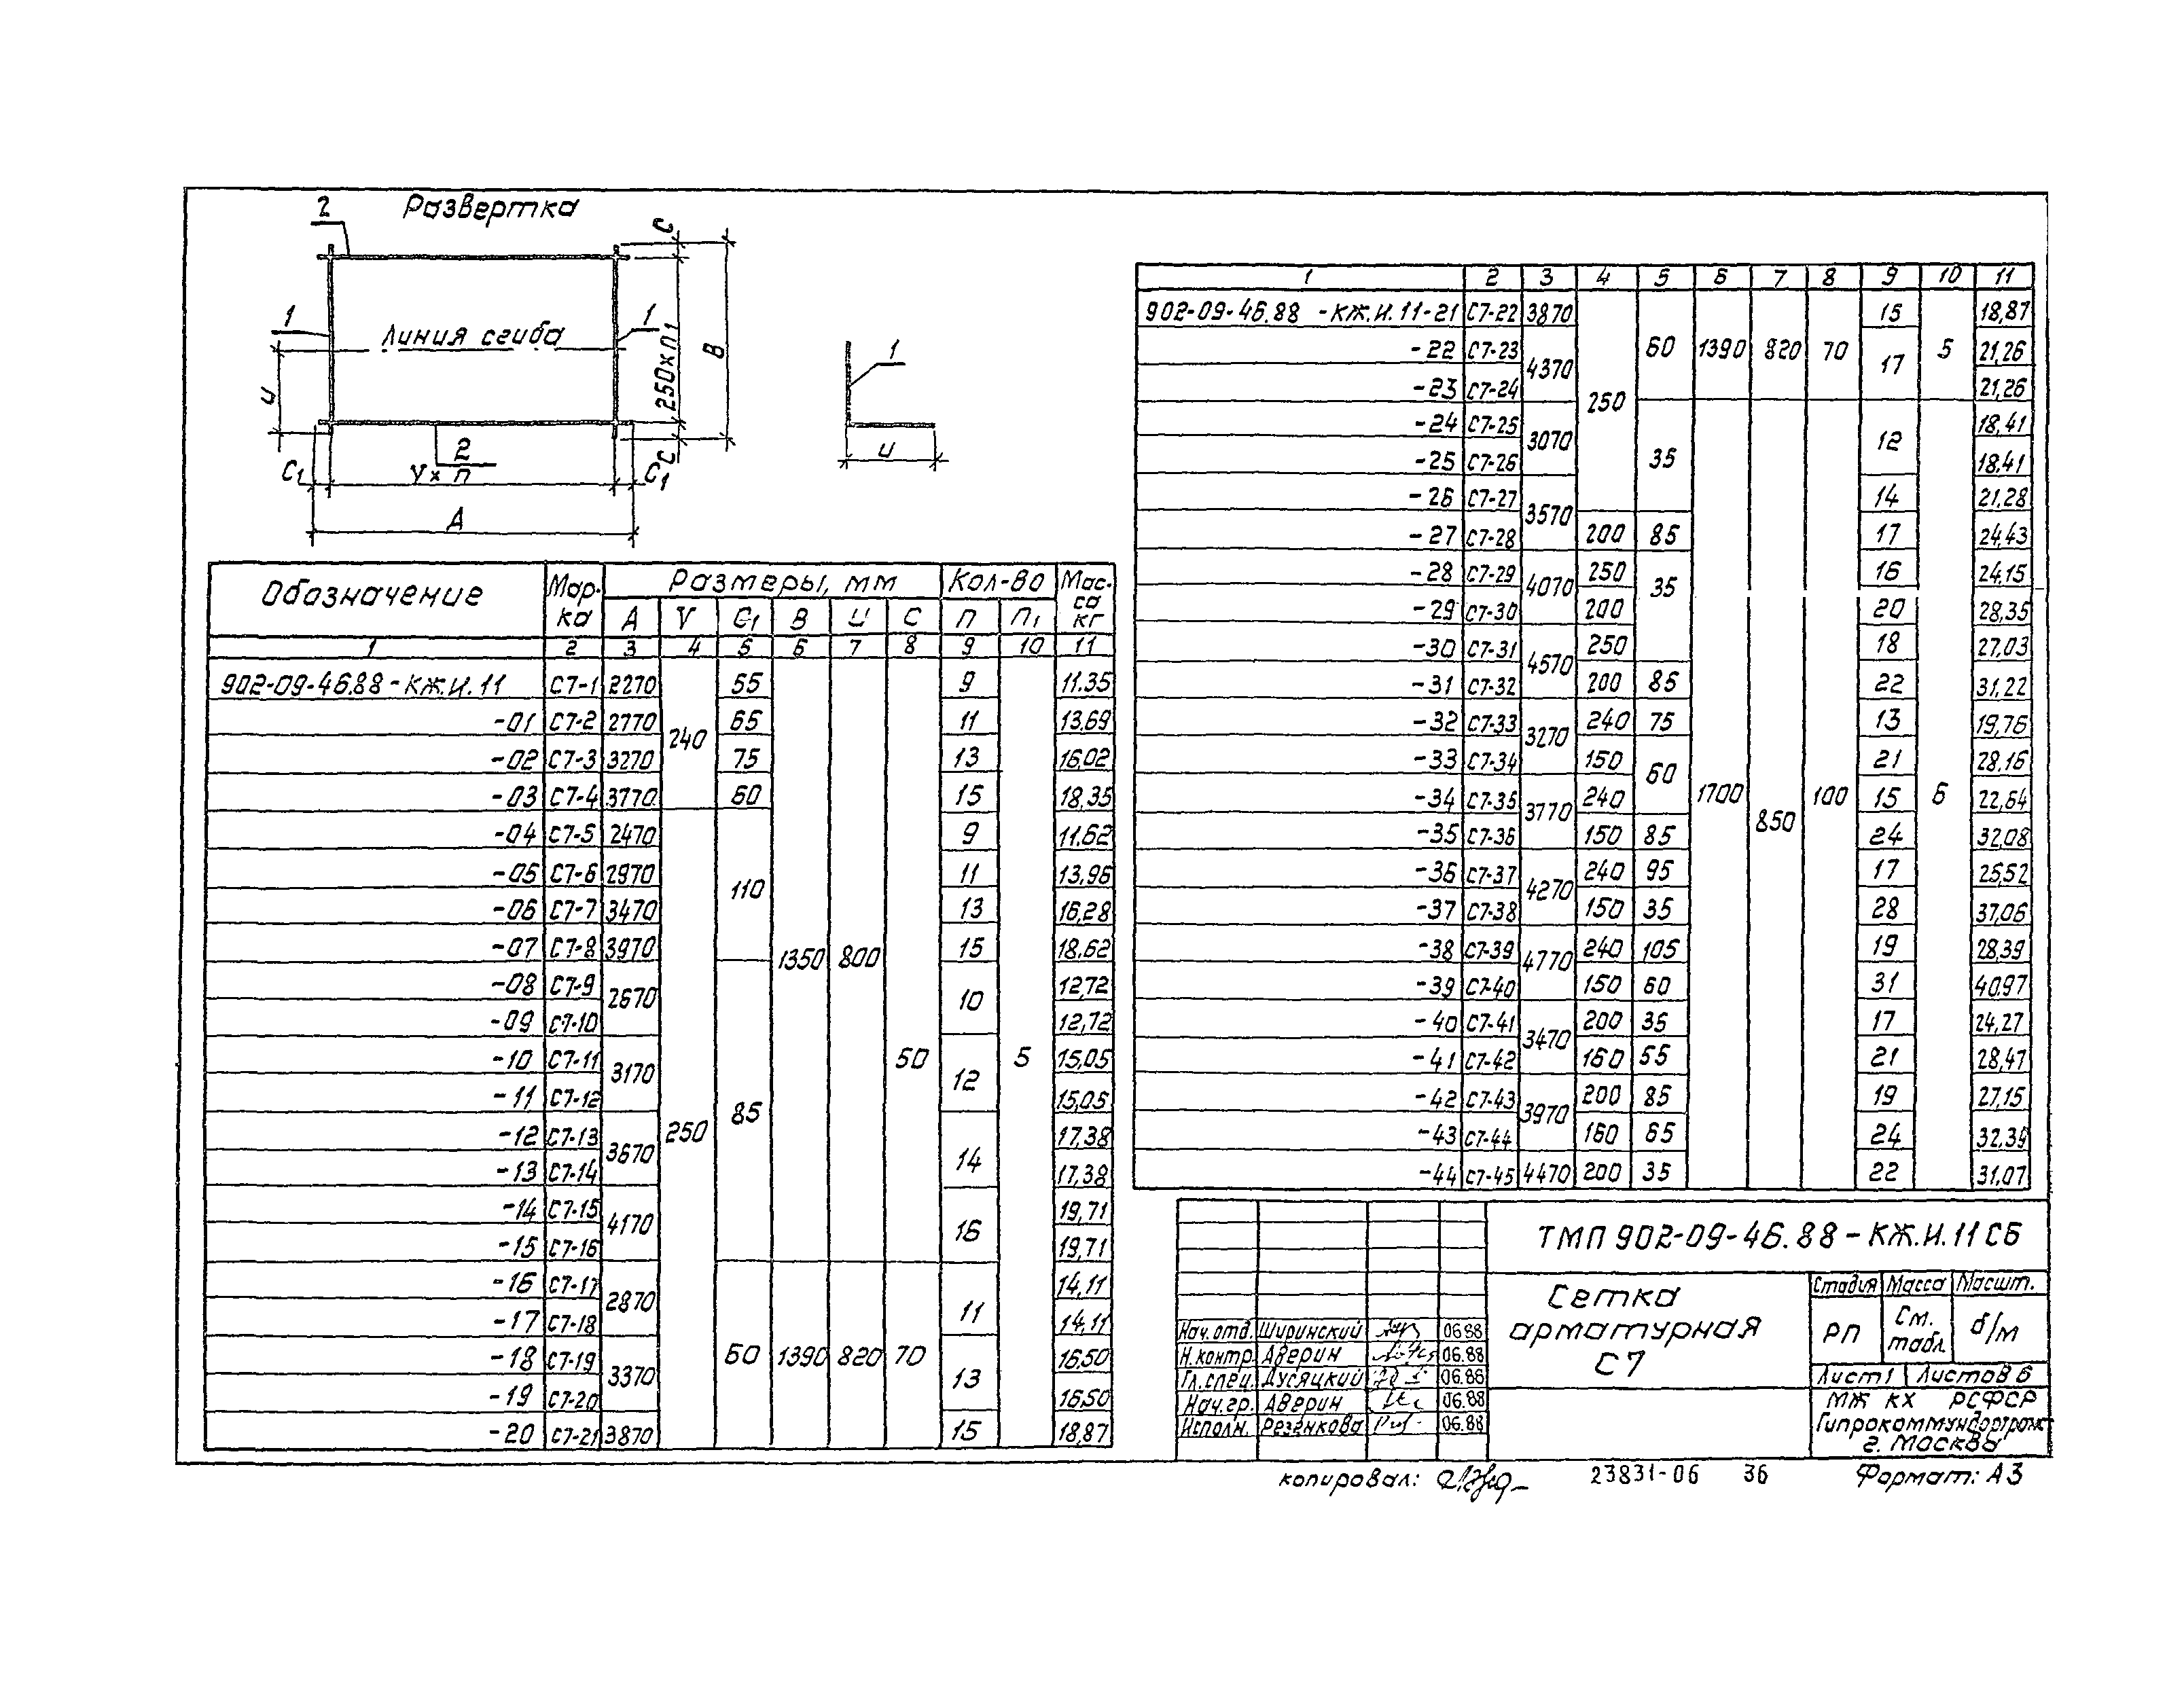 Развертка
2
1
1
Линия сгиба
и
C
250×п1
B
C
2
V×п
C1
C1
A
1
и
Обозначение Мар-ка Размеры, мм Кол-во Мас-са кг
A V C1 B И C п п1
1 2 3 4 5 6 7 8 9 10 11
902-09-46.88-КЖ.И.11 С7-1 2270 240 55 1350 800 50 9 5 11.35
-01 С7-2 2770 65 11 13,69
-02 С7-3 3270 75 13 16,02
-03 С7-4 3770 60 15 18,35
-04 С7-5 2470 250 110 9 11,62
-05 С7-6 2970 11 13,96
-06 С7-7 3470 13 16,28
-07 С7-8 3970 15 18,62
-08 С7-9 2670 85 10 12,72
-09 С7-10 12,72
-10 С7-11 3170 12 15,05
-11 С7-12 15,05
-12 С7-13 3670 14 17,38
-13 С7-14 17,38
-14 С7-15 4170 16 19,71
-15 С7-16 19,71
-16 С7-17 2870 60 1390 820 70 11 14,11
-17 С7-18 14,11
-18 С7-19 3370 13 16,50
-19 С7-20 16,50
-20 С7-21 3870 15 18,87
1 2 3 4 5 6 7 8 9 10 11
902-09-46.88 -КЖ.И.11-21 С7-22 3870 250 60 1390 820 70 15 5 18,87
-22 С7-23 4370 17 21,26
-23 С7-24 21,26
-24 С7-25 3070 35 1700 850 100 12 6 18,41
-25 С7-26 18,41
-26 С7-27 3570 14 21,28
-27 С7-28 200 85 17 24,43
-28 С7-29 4070 250 35 16 24,15
-29 С7-30 200 20 28,35
-30 С7-31 4570 250 18 27,03
-31 С7-32 200 85 22 31,22
-32 С7-33 3270 240 75 13 19,76
-33 С7-34 150 60 21 28,16
-34 С7-35 3770 240 15 22,64
-35 С7-36 150 85 24 32,08
-36 С7-37 4270 240 95 17 25,52
-37 С7-38 150 35 28 37,06
-38 С7-39 4770 240 105 19 28,39
-39 С7-40 150 60 31 40,97
-40 С7-41 3470 200 35 17 24,27
-41 С7-42 160 55 21 28,47
-42 С7-43 3970 200 85 19 27,15
-43 С7-44 160 65 24 32,39
-44 С7-45 4470 200 35 22 31,07
ТМП 902-09-46.88-КЖ.И.11 СБ
Сетка
арматурная
С7
Стадия Масса Масшт.
РП См. табл. б/м
Лист 1 Листов 6
МЖ КХ РСФСР
Гипрокоммундортранс
г. Москва
Нач. отд. Ширинский 06.88
Н.контр. Аверин 06.88
Гл.спец. Дусяцкий 06.88
Нач.гр. Аверин 06.88
Исполн. Резенкова 06.88
копировал:
23831-06 36
Формат: А3